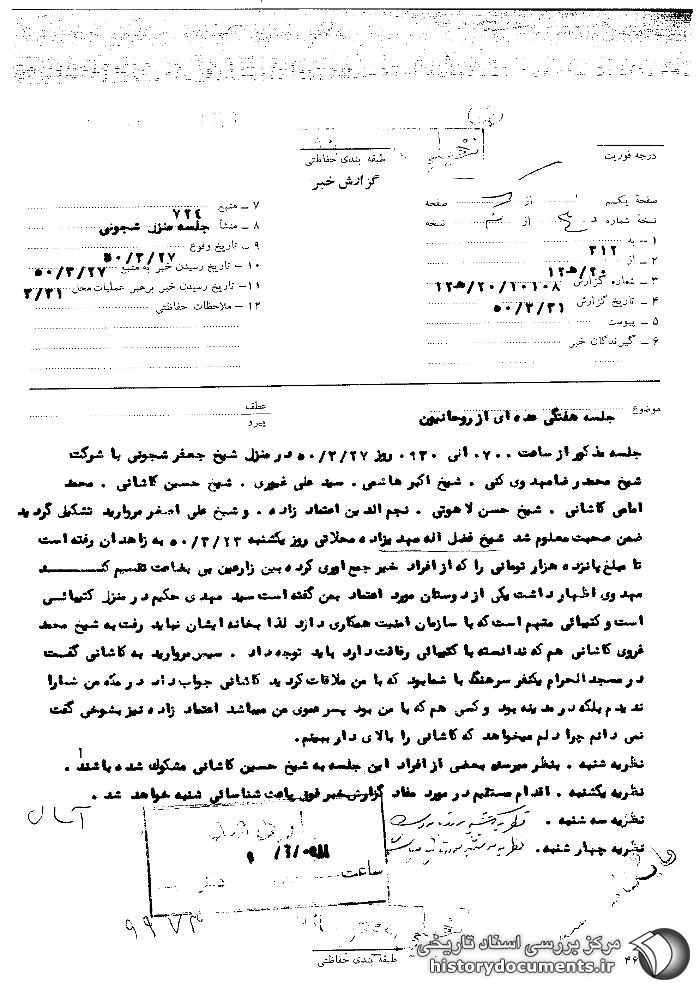 درجه فوریت
طبقه بندی حفاظتی
گزارش خبر
صفحه یکم از صفحه
نسخه شماره از نسخه
۱ - به ۳۱۲
۲ - از ۲۰/هـ۱۲
۳ - شماره گزارش ۱۰۱۰۸/۲۰/هـ۱۲
۴ - تاریخ گزارش ۵۰/۳/۳۱
۵ - پیوست
۶ - گیرندگان خبر
۷ - منبع ۷۲۴
۸ - منشأ جلسه منزل شجونی
۹ - تاریخ وقوع ۵۰/۳/۲۷
۱۰ - تاریخ رسیدن خبر به منبع ۵۰/۳/۲۷
۱۱ - تاریخ رسیدن خبر برهبر عملیات محل ۳/۳۱
۱۲ - ملاحظات حفاظتی
موضوع جلسه هفتگی عده ای از روحانیون
عطف
پیرو
جلسه مذکور از ساعت ۰۷۰۰ الی ۰۹۳۰ روز ۵۰/۳/۲۷ در منزل شیخ جعفر شجونی با شرکت
شیخ محمد رضا مهدوی کنی . شیخ اکبر هاشمی . سید علی غیوری . شیخ حسین کاشانی . محمد
امامی کاشانی . شیخ حسن لاهوتی . نجم الدین اعتماد زاده . و شیخ علی اصغر مروارید تشکیل گردید
ضمن صحبت معلوم شد شیخ فضل اله مهدیزاده محلاتی روز یکشنبه ۵۰/۳/۲۳ به زاهدان رفته است
تا مبلغ پانزده هزار تومانی را که از افراد خیر جمع اوری کرده بین زارعین بی بضاعت تقسیم کند
مهدوی اظهار داشت یکی از دوستان مورد اعتماد بمن گفته است سید مهدی حکیم در منزل کتیبائی
است و کتیبائی متهم است که با سازمان امنیت همکاری دارد لذا بخانه ایشان نباید رفت به شیخ محمد
غروی کاشانی هم که ندانسته با کتیبائی رفاقت دارد باید توجه داد . سپس مروارید به کاشانی گفت
در مسجد الحرام یکنفر سرهنگ با شما بود که با من ملاقات کردید کاشانی جواب داد در مکه من شما را
ندیدم بلکه در مدینه بود و کسی هم که با من بود پسر عموی من میباشد اعتماد زاده نیز بشوخی گفت
نمی دانم چرا دلم میخواهد که کاشانی را بالای دار ببینم.
نظریه شنبه . بنظر میرسد بعضی از افراد این جلسه به شیخ حسین کاشانی مشکوک شده باشند .
نظریه یکشنبه . اقدام مستقیم در مورد مفاد گزارش خبر فوق باعث شناسائی شنبه خواهد شد .
نظریه سه شنبه .
نظریه چهار شنبه .
ساعت
۹۹۷۳
طبقه بندی حفاظتی
۴۶
مرکز بررسی اسناد تاریخی
historydocuments.ir